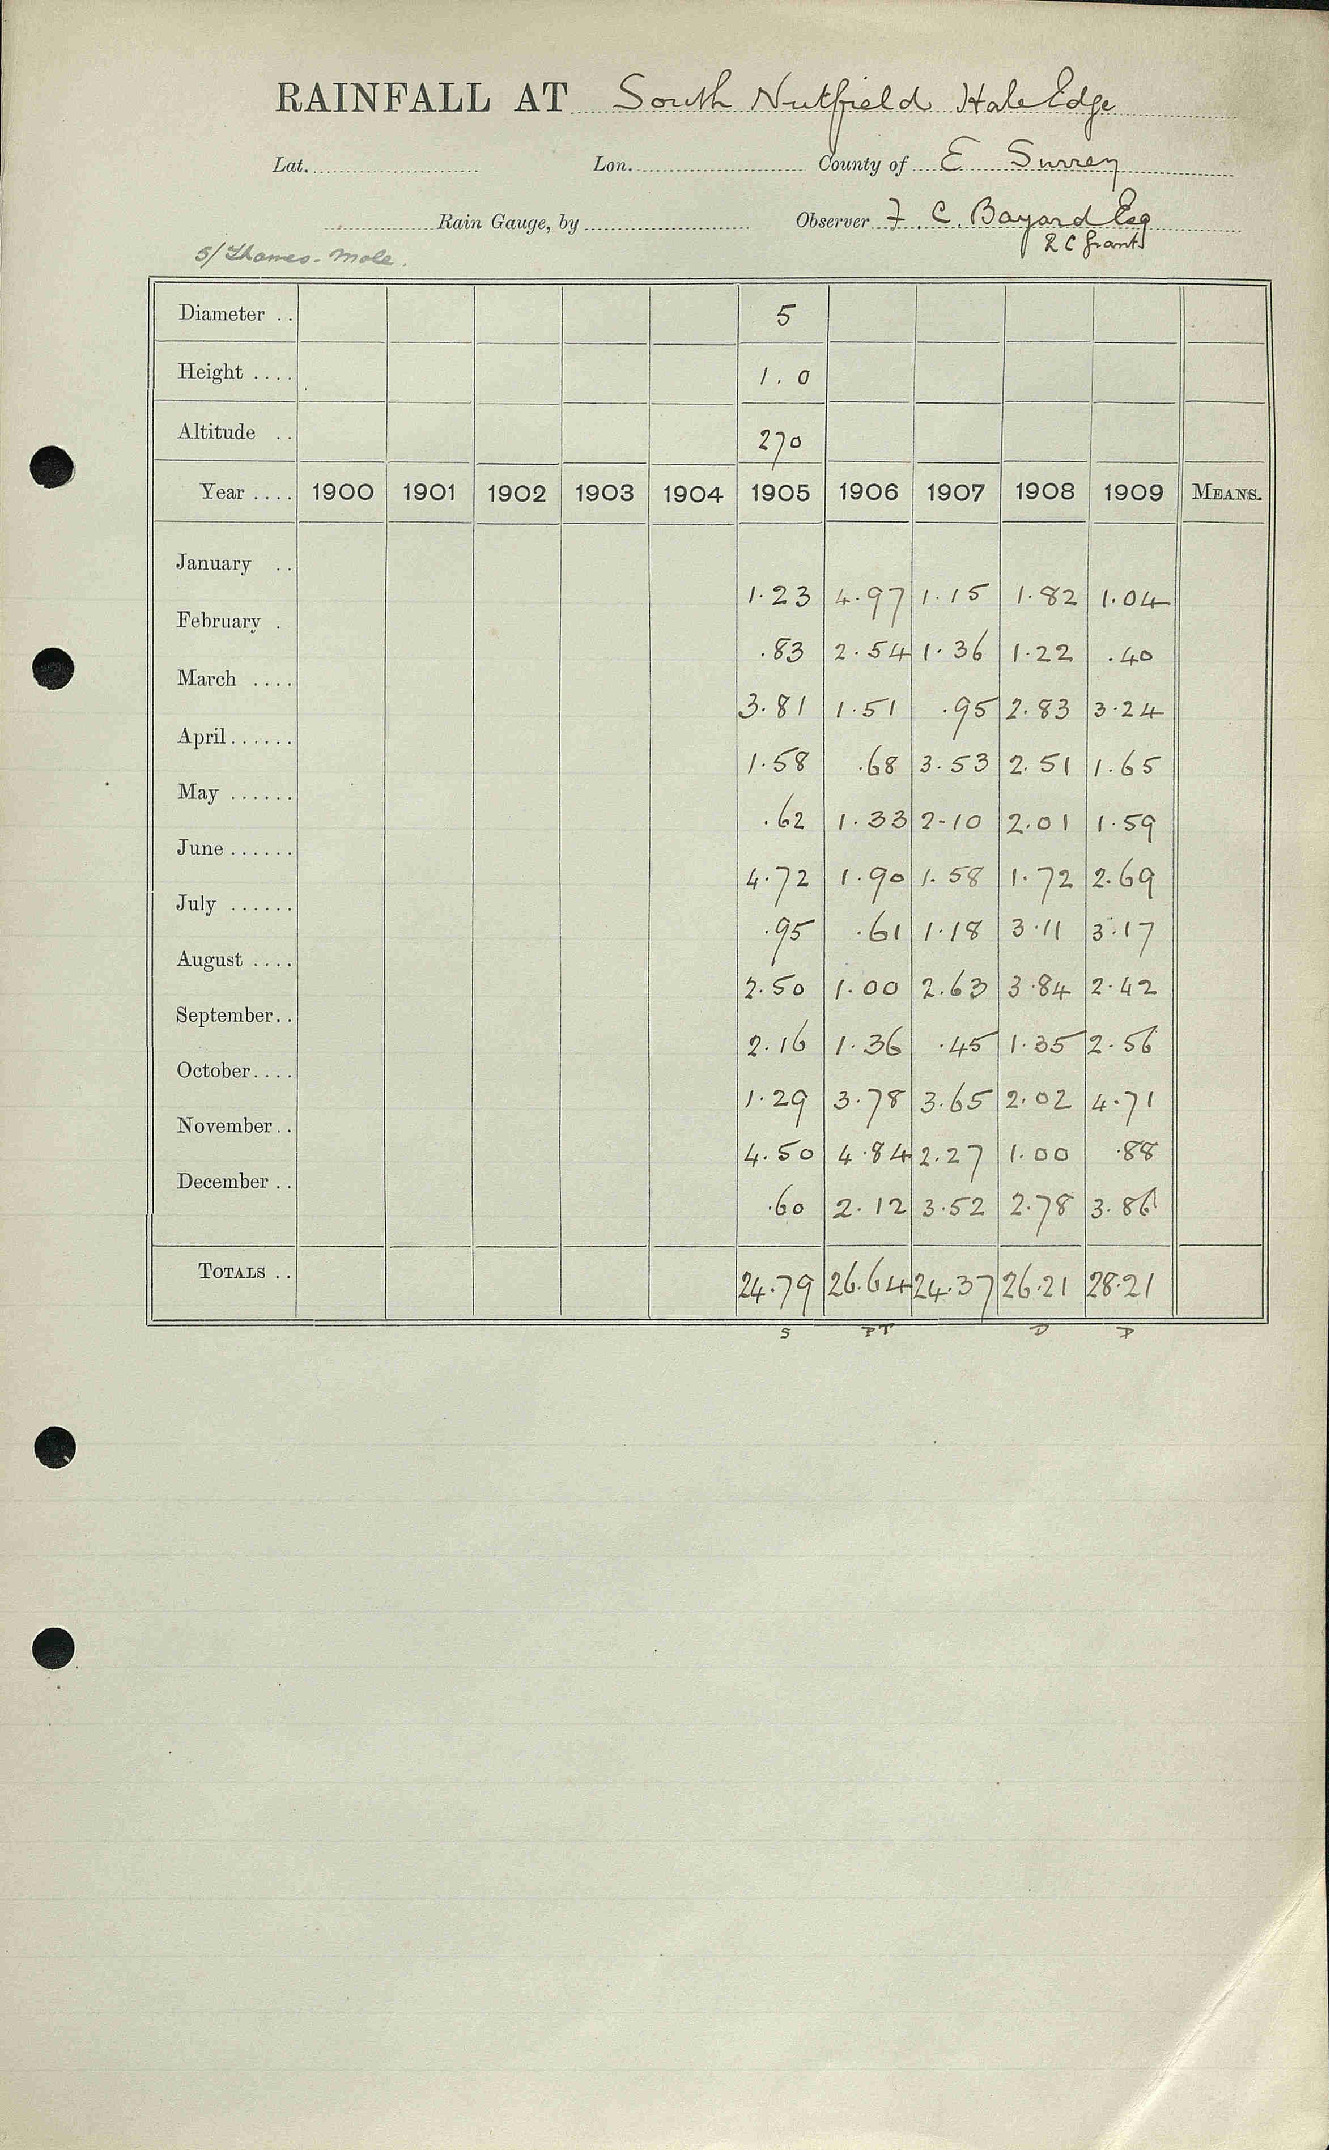 RAINFALL AT South Nutfield Hale Edge
Lat. Lon. County of E Surrey
Rain Gauge, by Observer F. C. Bayard Esq
R C Grant
5/ Thames - Mole.
Diameter .. 5
Height .... 1.0
Altitude .. 270
Year .... 1900 1901 1902 1903 1904 1905 1906 1907 1908 1909 MEANS.
January .. 1.23 4.97 1.15 1.82 1.04
February . .83 2.54 1.36 1.22 .40
March .... 3.81 1.51 .95 2.83 3.24
April...... 1.58 .68 3.53 2.51 1.65
May ...... .62 1.33 2-10 2.01 1.59
June...... 4.72 1.90 1.58 1.72 2.69
July ...... .95 .61 1.18 3.11 3.17
August .... 2.50 1.00 2.63 3.84 2.42
September.. 2.16 1.36 .45 1.35 2.56
October.... 1.29 3.78 3.65 2.02 4.71
November.. 4.50 4.84 2.27 1.00 .88
December .. .60 2.12 3.52 2.78 3.86
TOTALS .. 24.79 26.64 24.37 26.21 28.21
S PT D P